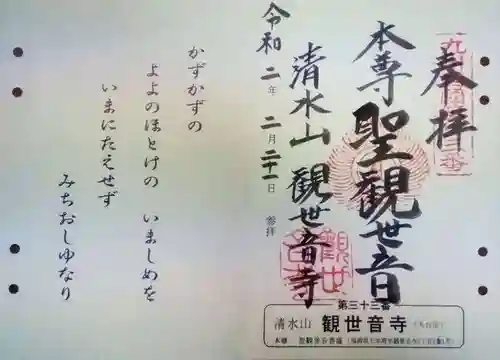 奉拝
本尊聖観世音
清水山 観世音寺
令和二年二月二十一日 参拝
第三十三番
清水山 観世音寺
本尊 聖観世音菩薩
かずかずの
よよのほとけの いましめを
いまにたえせず
みちおしゆなり